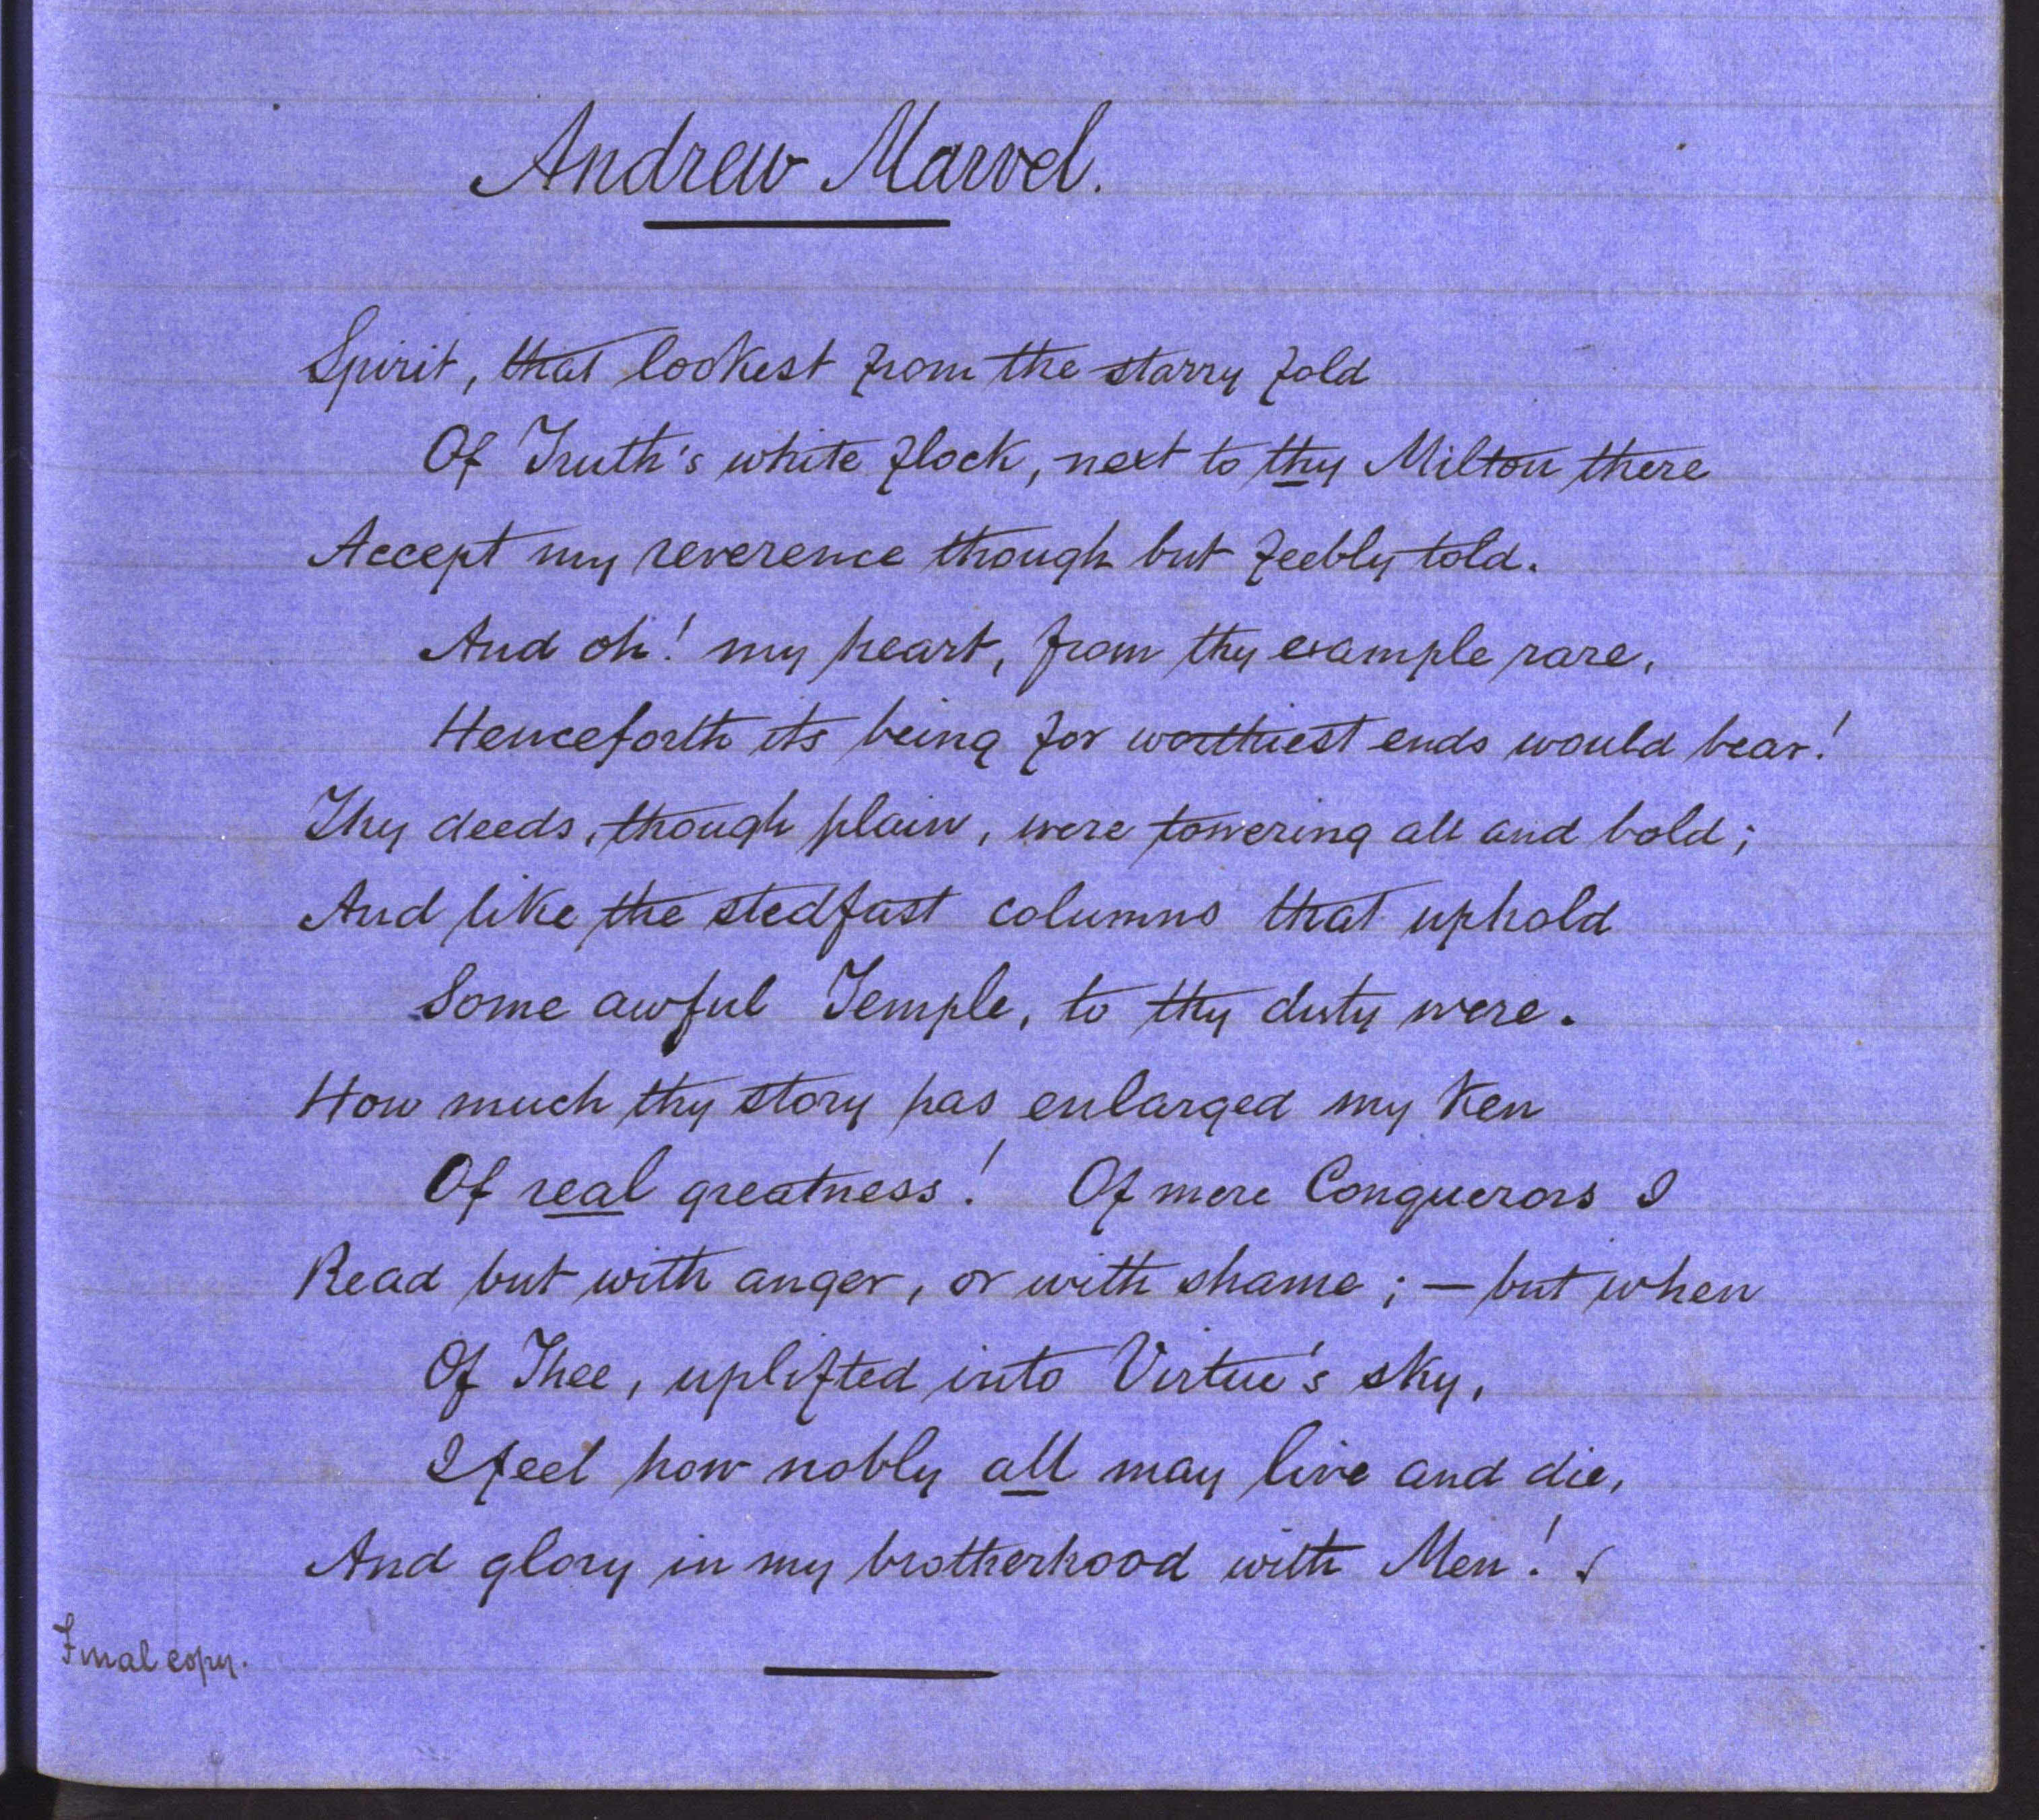 Andrew Marvel.
Spirit, that lookest from the starry fold
Of Truth's white flock, next to thy Milton there
Accept my reverence though but feebly told.
And oh! my heart, from thy example rare,
Henceforth its being for worthiest ends would bear!
Thy deeds, though plain, were towering all and bold;
And like the stedfast columns that uphold
Some awful Temple, to thy duty were.
How much thy story has enlarged my ken
Of real greatness! Of mere Conquerors I
Read but with anger, or with shame; — but when
Of Thee, uplifted into Virtue's sky,
I feel how nobly all may live and die,
And glory in my brotherhood with Men!
Final copy.